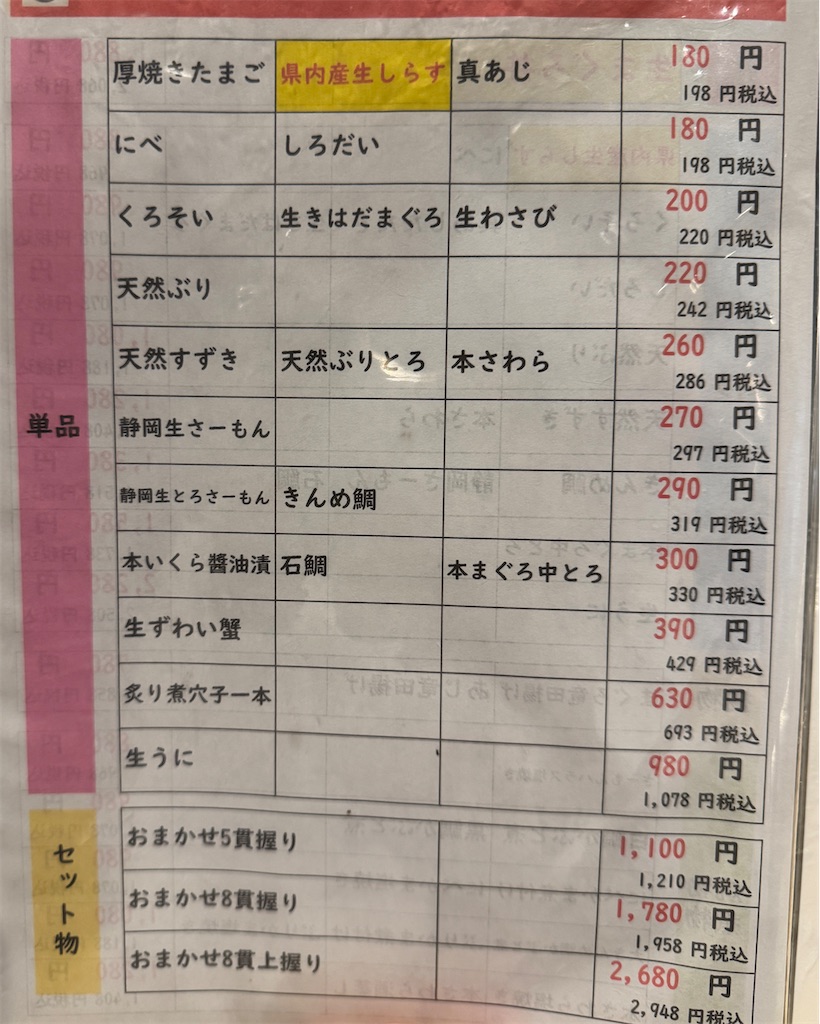 単品
厚焼きたまご 県内産生しらす 真あじ 180 円
198 円税込
にべ しろだい 180 円
198 円税込
くろそい 生きはだまぐろ 生わさび 200 円
220 円税込
天然ぶり 220 円
242 円税込
天然すずき 天然ぶりとろ 本さわら 260 円
286 円税込
静岡生さーもん 270 円
297 円税込
静岡生とろさーもん きんめ鯛 290 円
319 円税込
本いくら醤油漬 石鯛 本まぐろ中とろ 300 円
330 円税込
生ずわい蟹 390 円
429 円税込
炙り煮穴子一本 630 円
693 円税込
生うに 980 円
1,078 円税込
セット物
おまかせ5貫握り 1,100 円
1,210 円税込
おまかせ8貫握り 1,780 円
1,958 円税込
おまかせ8貫上握り 2,680 円
2,948 円税込